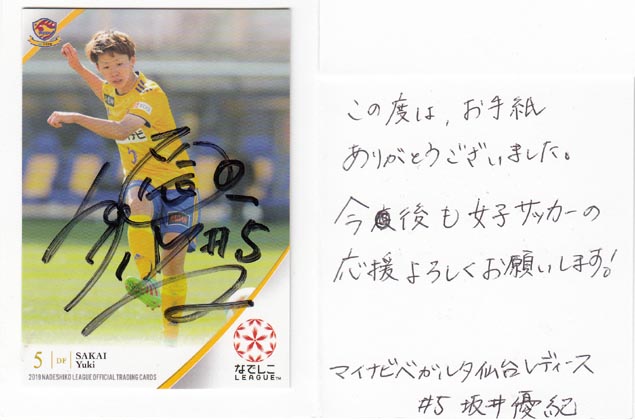 5 DF SAKAI
Yuki
2019 NADESHIKO LEAGUE OFFICIAL TRADING CARDS
なでしこ
LEAGUE
#5
この度は、お手紙
ありがとうございました。
今後も女子サッカーの
応援よろしくお願いします!
マイナビベガルタ仙台レディース
#5 坂井優紀